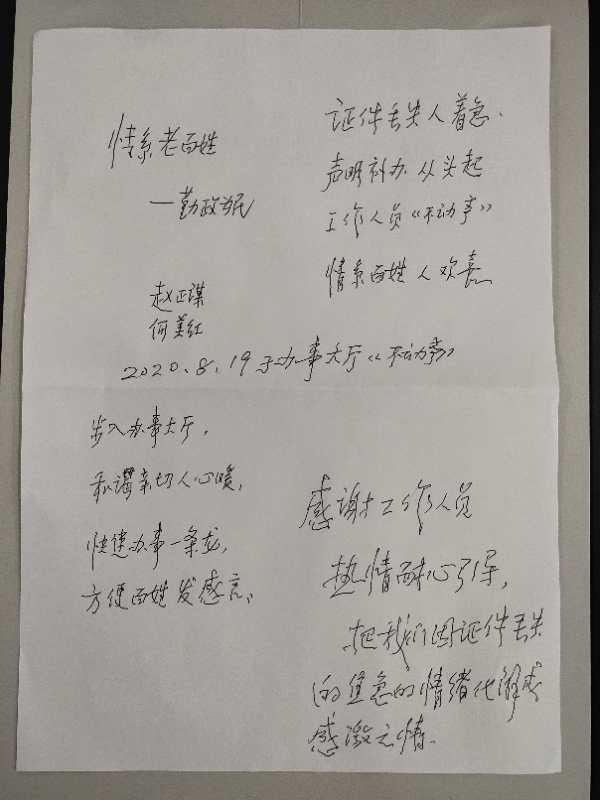 情系老百姓
—勤政为民
赵正谋
何美红
证件丢失人着急、
声明补办从头起
工作人员《不动产》
情系百姓人欢喜
2020.8.19于办事大厅《不动产》
步入办事大厅，
和谐亲切人心暖，
快速办事一条龙，
方便百姓发感言、
感谢工作人员
热情耐心引导，
把我们因证件丢失
的焦急的情绪化解成
感激之情.